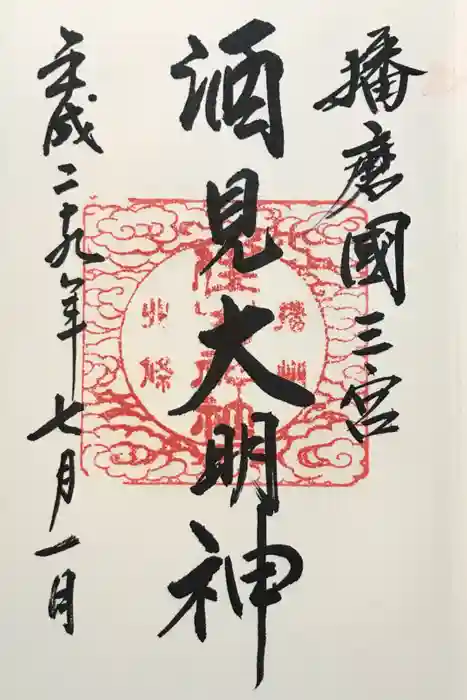 播磨國三宮
酒見大明神
平成二十九年七月一日
播州
北條